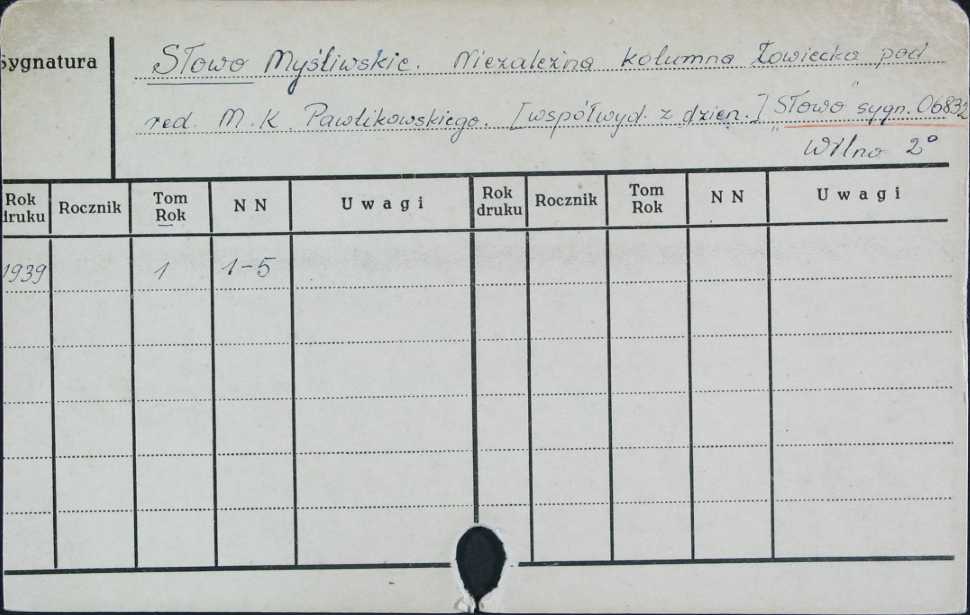 Sygnatura
Słowo Myśliwskie. Niezależna kolumna Łowiecka pod
red. M. K. Pawlikowskiego. [współwyd. z dzien.] "Słowo" sygn. 06832
Wilno 2°
Rok druku Rocznik Tom Rok N N Uwagi Rok druku Rocznik Tom Rok N N Uwagi
1939 1 1-5